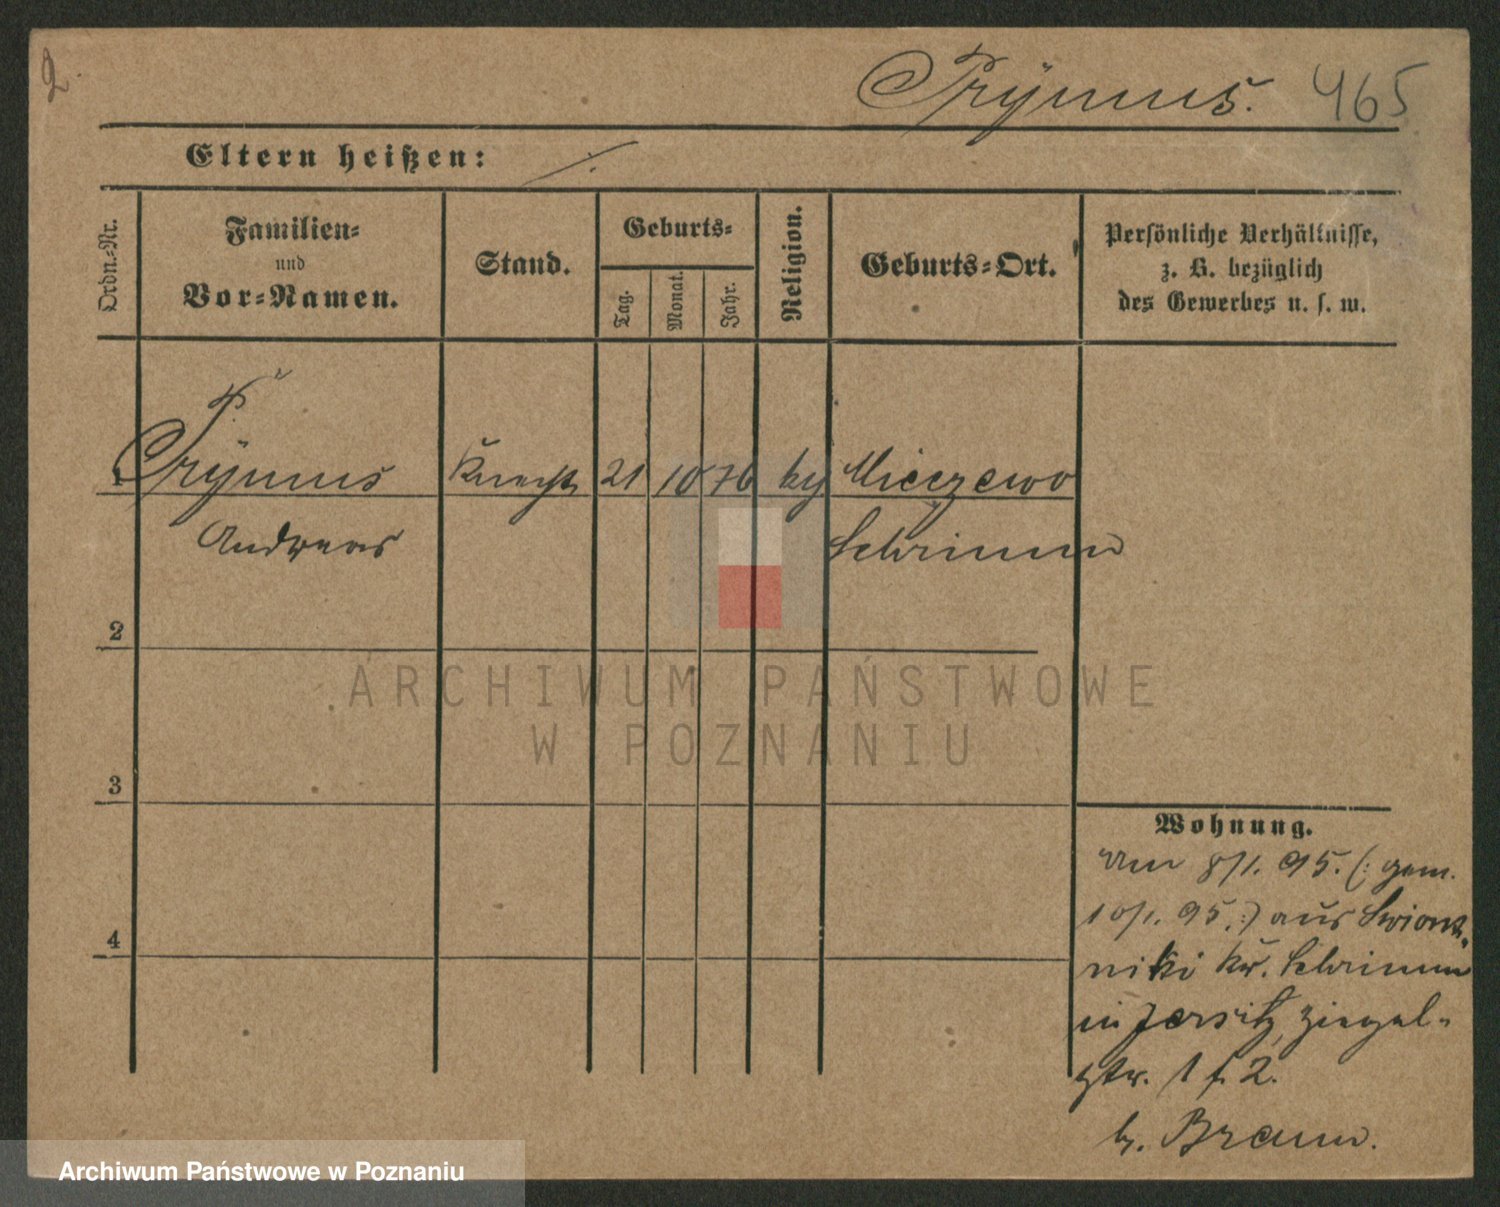 2.
Prÿmus. 465
Eltern heißen: ./.
Ordn.-Nr.
Familien-
und
Vor-Namen.
Stand.
Geburts-
Tag.
Monat.
Jahr.
Religion.
Geburts-Ort.
Persönliche Verhältnisse,
z. B. bezüglich
des Gewerbes u. s. w.
1 Prÿmus Knecht 21 10 76 Mieczewo
Andreas Schrimm
2
3
4
Wohnung.
Am 8/1. 95. (: gem.
10/1. 95. :) aus Swiont-
niki Kr. Schrimm
in Jersitz, Ziegel-
str. 1 f. 2.
b. Braun.
ARCHIWUM PAŃSTWOWE
W POZNANIU
Archiwum Państwowe w Poznaniu